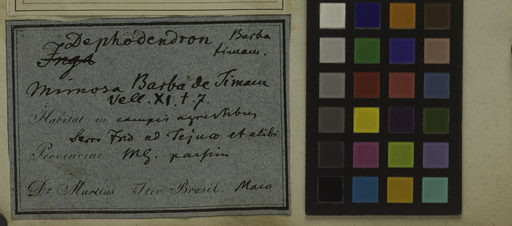 Dephodendron Barba
Inga timam.
Mimosa Barba de Timam
Vell. XI. t. 7.
Habitat in campis agrestibus
Serro Frio ad Tejuco et alibi
Provinciae MG. passim
Dr. Martius Iter Brasil. Maio